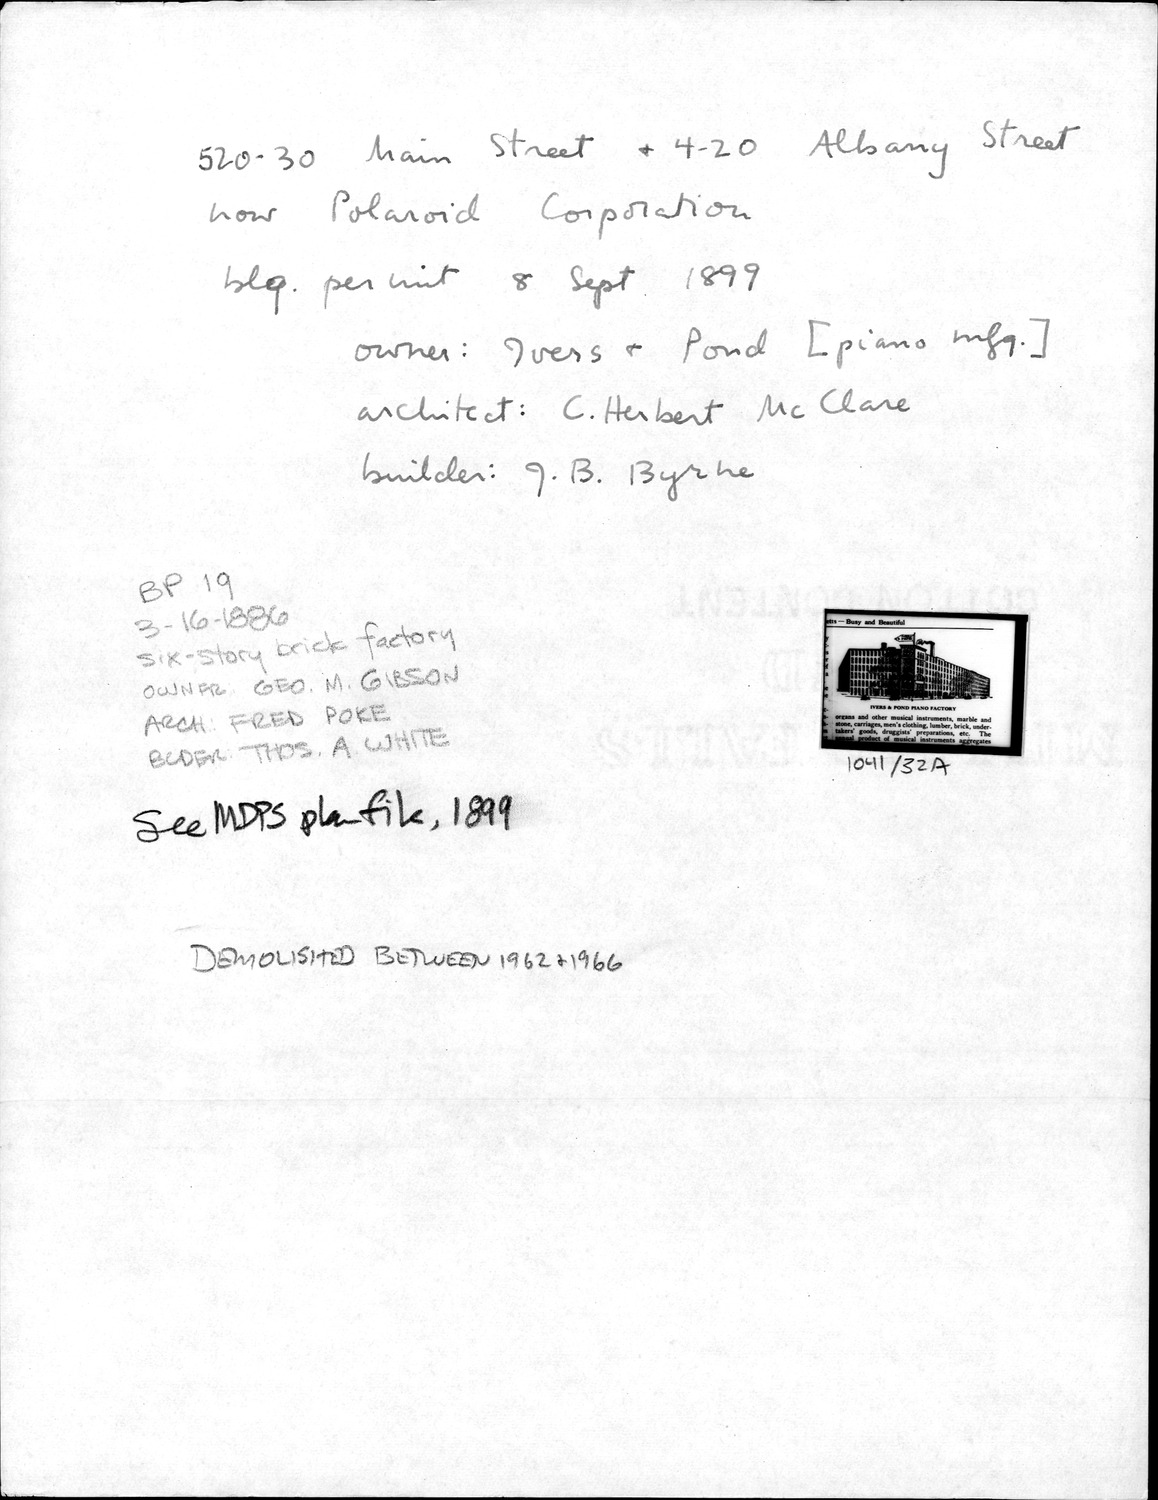 520-30 Main Street + 4-20 Albany Street
now Polaroid Corporation
blg. permit 8 Sept 1899
owner: Ivers + Pond [piano mfg.]
architect: C. Herbert McClare
builder: J. B. Byrne
BP 19
3-16-1886
six-story brick factory
OWNER: GEO. M. GIBSON
ARCH: FRED POKE
BLDER: THOS. A WHITE
etts — Busy and Beautiful
IVERS & POND PIANO FACTORY
organs and other musical instruments, marble and
stone, carriages, men's clothing, lumber, brick, under-
takers' goods, druggists' preparations, etc. The
annual product of musical instruments aggregates
1041/32A
See MDPS plan file, 1899
DEMOLISHED BETWEEN 1962 + 1966